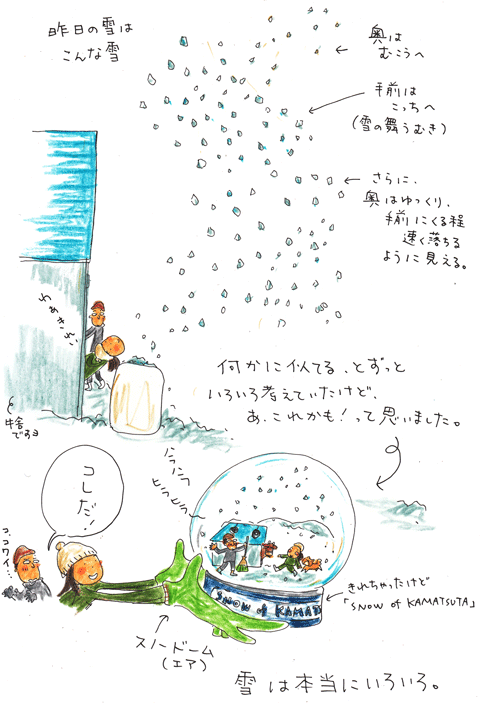 昨日の雪は
こんな雪
奥は
むこうへ
手前は
こっちへ
(雪の舞うむき)
さらに、
奥はゆっくり、
手前にくる程
速く落ちる
ように見える。
わぁきれい
牛舎
ですョ
何かに似てる、とずっと
いろいろ考えていたけど、
あ、これかも!って思いました。
フラフラ
ヒラヒラ
コレだ!
コ、コワイ…
SNOW of KAMA
きれちゃったけど
「SNOW of KAMATSUTA」
スノードーム
(エア)
雪は本当にいろいろ。